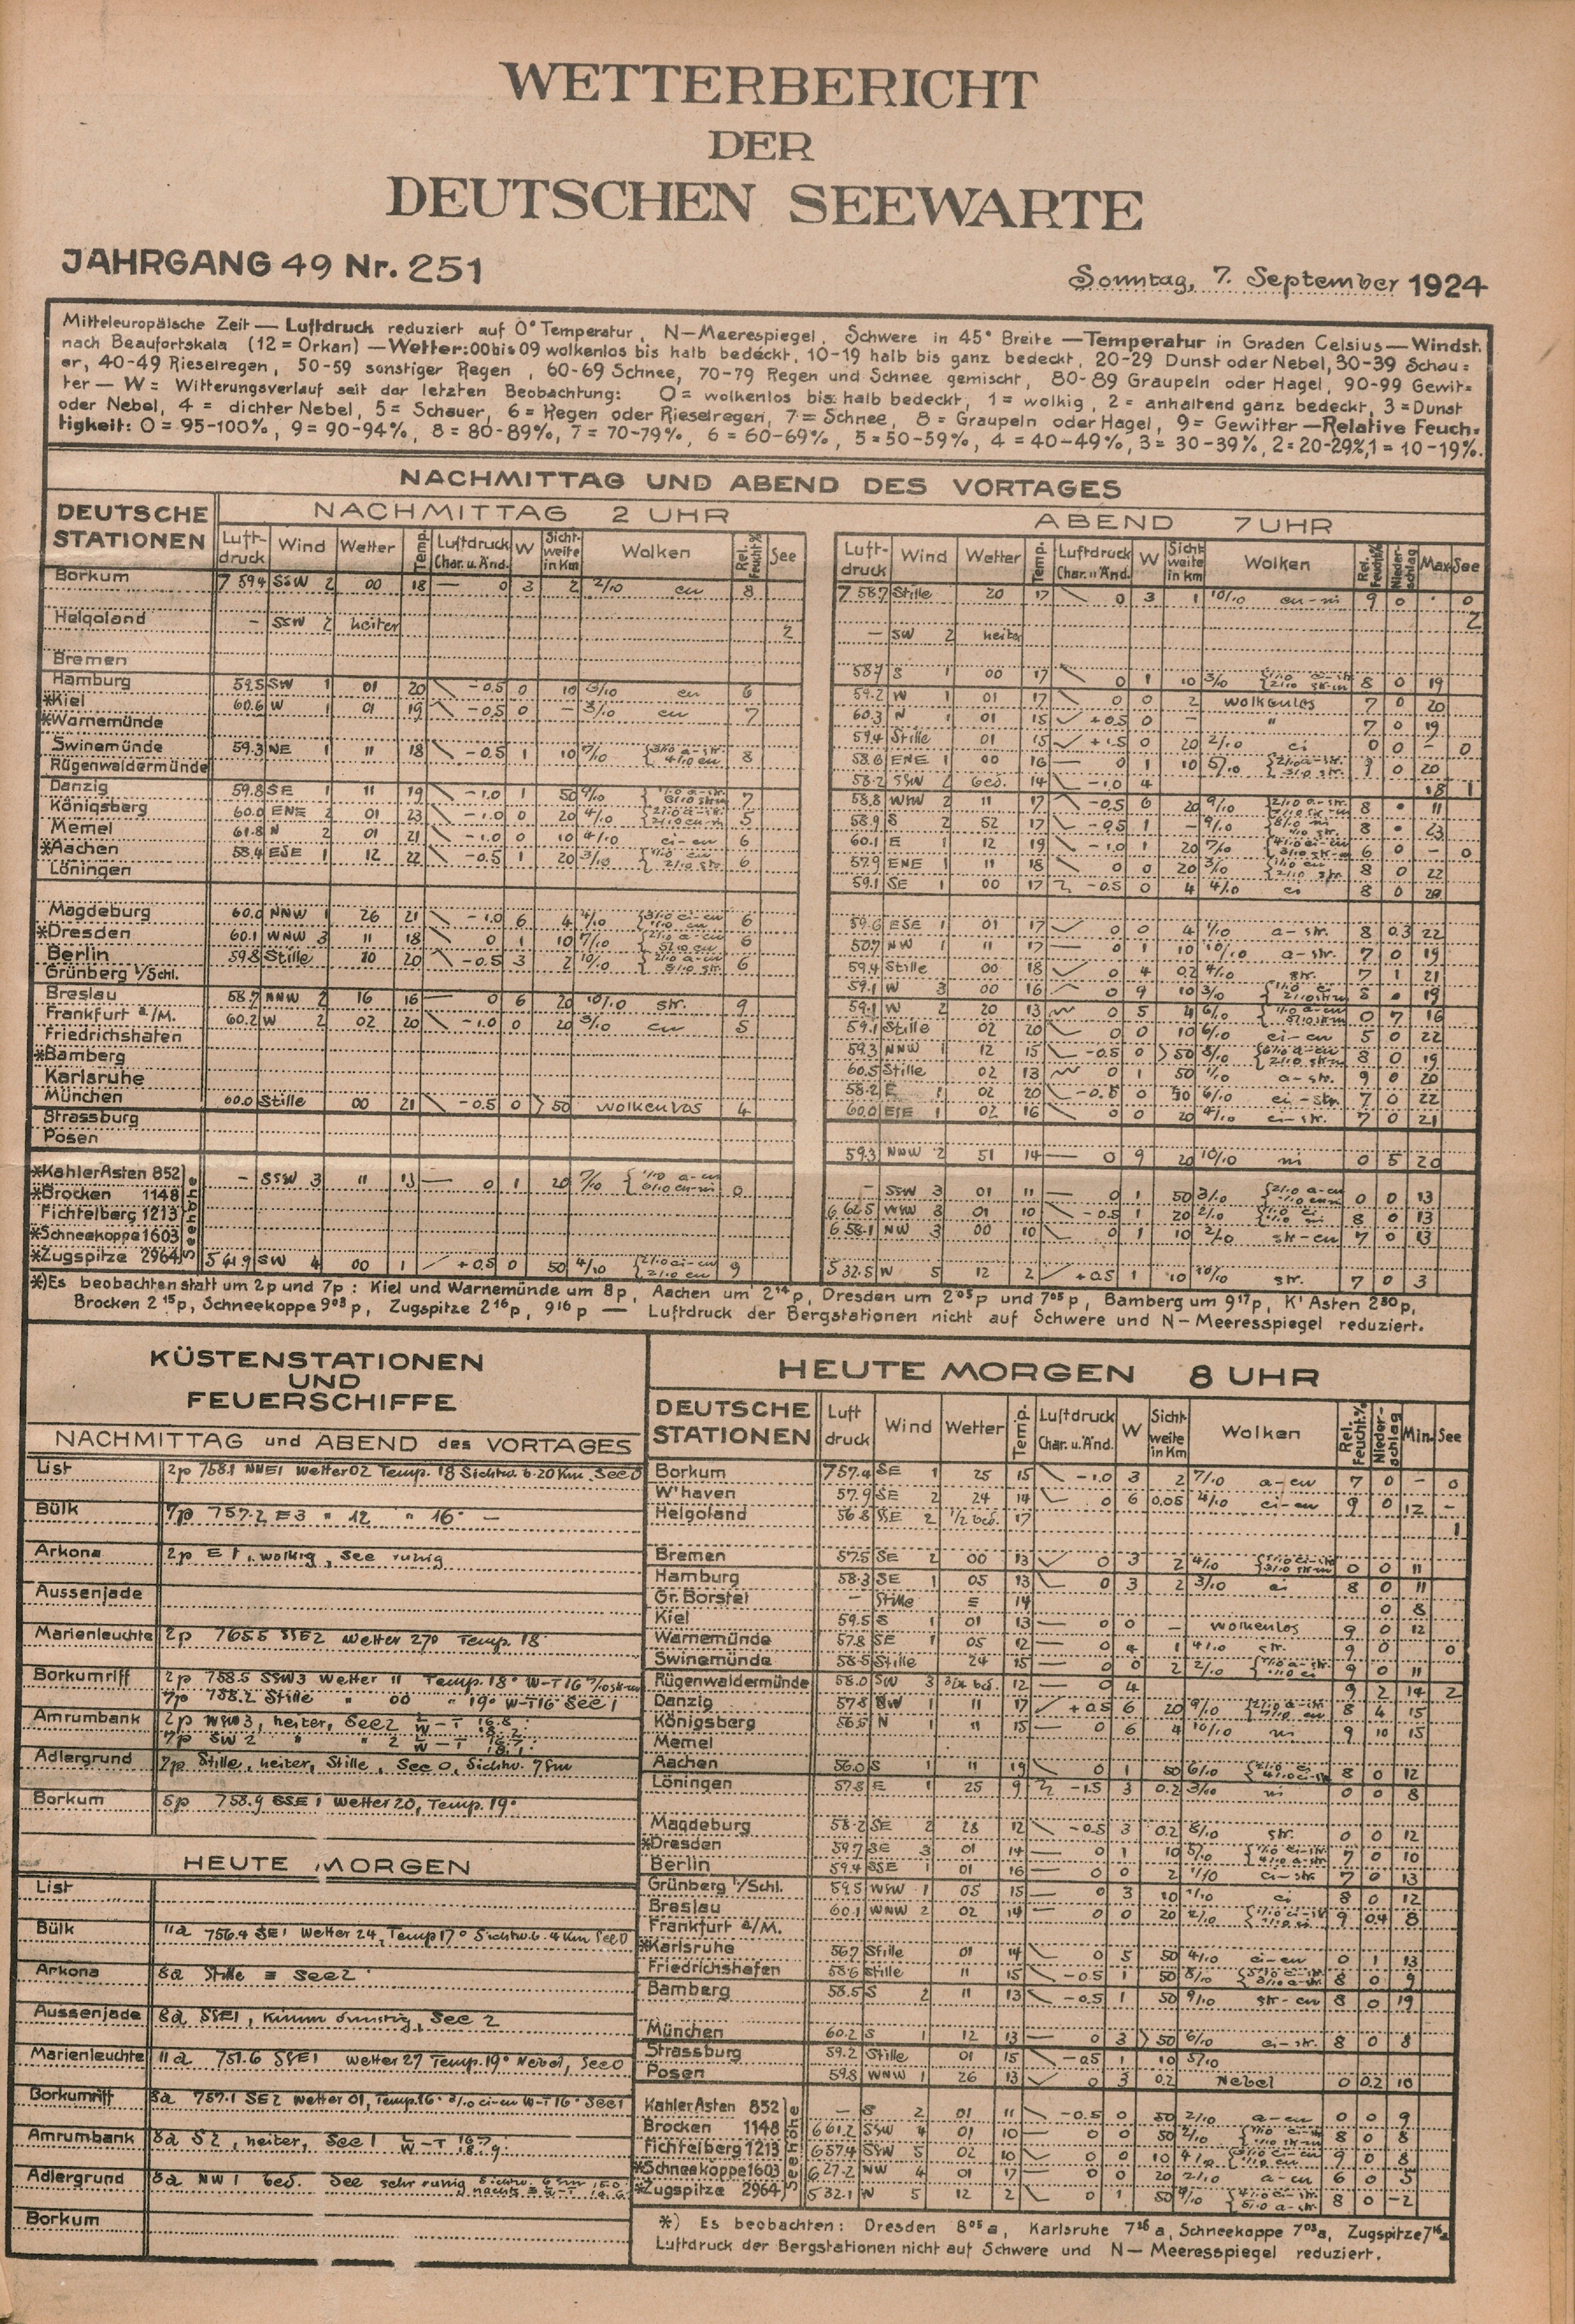 WETTERBERICHT
DER
DEUTSCHEN SEEWARTE
JAHRGANG 49 Nr. 251
Sonntag, 7. September 1924
Mitteleuropäische Zeit — Luftdruck reduziert auf 0° Temperatur, N—Meerespiegel, Schwere in 45° Breite — Temperatur in Graden Celsius — Windst.
nach Beaufortskala (12 = Orkan) — Wetter: 00 bis 09 wolkenlos bis halb bedeckt, 10-19 halb bis ganz bedeckt, 20-29 Dunst oder Nebel, 30-39 Schau=
er, 40-49 Rieselregen, 50-59 sonstiger Regen, 60-69 Schnee, 70-79 Regen und Schnee gemischt, 80-89 Graupeln oder Hagel, 90-99 Gewit=
ter — W = Witterungsverlauf seit der letzten Beobachtung: 0 = wolkenlos bis halb bedeckt, 1 = wolkig, 2 = anhaltend ganz bedeckt, 3 = Dunst
oder Nebel, 4 = dichter Nebel, 5 = Schauer, 6 = Regen oder Rieselregen, 7 = Schnee, 8 = Graupeln oder Hagel, 9 = Gewitter — Relative Feuch=
tigkeit: 0 = 95-100%, 9 = 90-94%, 8 = 80-89%, 7 = 70-79%, 6 = 60-69%, 5 = 50-59%, 4 = 40-49%, 3 = 30-39%, 2 = 20-29%, 1 = 10-19%.
NACHMITTAG UND ABEND DES VORTAGES
DEUTSCHE STATIONEN
NACHMITTAG 2 UHR
Luft-druck Wind Wetter Temp. Luftdruck Char. u. Änd. W Sicht-weite in km Wolken Rel. Feucht.% See
ABEND 7 UHR
Luft-druck Wind Wetter Temp. Luftdruck Char. u. Änd. W Sicht-weite in km Wolken Rel. Feucht.% Nieder-schlag Max. See
Borkum 7 59.4 SSW 2 00 18 — 0 3 2 2/10 cu 8
7 58.7 Stille 20 17 0 3 1 10/10 cu-ni 9 0 0
Helgoland – SSW 2 heiter 2
– SW 2 heiter 2
Bremen
58.7 S 1 00 17 0 1 10 3/10 8 0 19
Hamburg 59.5 SW 1 01 20 -0.5 0 10 3/10 cu 6
59.2 W 1 01 17 0 0 2 wolkenlos 7 0 20
*Kiel 60.6 W 1 01 19 -0.5 0 – 3/10 cu 7
60.3 N 1 01 15 +0.5 0 – " 7 0 19
*Warnemünde
59.4 Stille 01 15 0 20 2/10 ci 0 0 – 0
Swinemünde 59.3 NE 1 11 18 -0.5 1 10 7/10 8
58.6 ENE 1 00 16 — 0 1 10 5/10 0 20
Rügenwaldermünde
58.2 SSW 2 bed. 14 -1.0 4 18 1
Danzig 59.8 SE 1 11 19 -1.0 1 50 7
58.8 WNW 2 11 17 -0.5 6 20 9/10 8 11
Königsberg 60.0 ENE 2 01 23 -1.0 0 20 4/10 5
58.9 S 2 52 17 -0.5 1 – 9/10 8 23
Memel 61.8 N 2 01 21 -1.0 0 10 4/10 ci-cu 6
60.1 E 1 12 19 -1.0 1 20 7/10 6 0 – 0
*Aachen 58.4 ESE 1 12 22 -0.5 1 20 3/10 6
57.9 ENE 1 11 18 0 0 20 3/10 8 0 22
Löningen
59.1 SE 1 00 17 -0.5 0 4 4/10 ci 8 0
Magdeburg 60.0 NNW 1 26 21 -1.0 6 4 6
59.6 ESE 1 01 17 0 0 4 1/10 a-str. 8 0.3 22
*Dresden 60.1 WNW 3 11 18 0 1 10 7/10 6
NW 1 11 17 — 0 1 10 10/10 a-str. 7 0 19
Berlin 59.8 Stille 10 20 -0.5 3 2 10/10 6
59.4 Stille 00 18 0 4 0.2 4/10 str. 7 1 21
Grünberg i/Schl.
59.1 W 3 00 16 0 9 10 3/10 8 19
Breslau 58.7 NNW 2 16 16 — 0 6 20 10/10 str. 9
59.1 W 2 20 13 0 5 4 6/10 0 7 16
Frankfurt a/M. 60.2 W 2 02 20 -1.0 0 20 3/10 cu 5
59.1 Stille 02 20 0 0 10 6/10 ci-cu 5 0 22
Friedrichshafen
59.3 NNW 1 12 15 -0.5 0 >50 8/10 8 0 19
*Bamberg
60.5 Stille 02 13 0 1 50 1/10 a-str. 9 0 20
Karlsruhe
58.2 E 1 02 20 -0.5 0 50 6/10 ci-str. 7 0 22
München 60.0 Stille 00 21 -0.5 0 >50 wolkenlos 4
60.0 ESE 1 02 16 0 0 20 4/10 ci-str. 7 0 21
Strassburg
Posen
59.3 NNW 2 51 14 — 0 9 20 10/10 ni 0 5 20
*Kahler Asten 852 – SSW 3 11 13 — 0 1 20 7/10 0
– SSW 3 01 11 — 0 1 50 3/10 0 0 13
*Brocken 1148
6 62.5 WSW 3 01 10 -0.5 1 20 2/10 8 0 13
Fichtelberg 1213
6 58.1 NW 3 00 10 0 1 10 2/10 str-cu 7 0 13
*Schneekoppe 1603
*Zugspitze 2964 SW 4 00 1 +0.5 0 50 4/10 9
5 32.5 W 5 12 2 +0.5 1 10 10/10 str. 7 0 3
Seehöhe
*) Es beobachten statt um 2p und 7p: Kiel und Warnemünde um 8p, Aachen um 2¹⁴p, Dresden um 2⁰⁵p und 7⁰⁵p, Bamberg um 9¹⁷p, K'Asten 2³⁰p,
Brocken 2¹⁵p, Schneekoppe 9⁰³p, Zugspitze 2¹⁶p, 9¹⁶p — Luftdruck der Bergstationen nicht auf Schwere und N—Meeresspiegel reduziert.
KÜSTENSTATIONEN
UND
FEUERSCHIFFE
NACHMITTAG und ABEND des VORTAGES
List 2p 758.1 NNE1 Wetter 02 Temp. 18 Sichtw. 6-20 Km See 0
Bülk 7p 757.2 E3 " 12 " 16° —
Arkona 2p E 1, wolkig, See ruhig
Aussenjade
Marienleuchte 2p 765.5 SSE2 Wetter 270 Temp. 18
Borkumriff 2p 758.5 SSW3 Wetter 11 Temp. 18° W-T 16
7p 758.2 Stille " 00 " 19° W-T 16 See 1
Amrumbank 2p WSW3, heiter, See 2
7p SW 2 " " 2
Adlergrund 7p Stille, heiter, Stille, See 0, Sichtw. 7 Sm
Borkum 5p 758.9 SSE 1 Wetter 20, Temp. 19°
HEUTE MORGEN
List
Bülk 11a 756.4 SE1 Wetter 24, Temp 17° Sichtw. 6-4 Km See 0
Arkona 8a Stille ≡ See 2
Aussenjade 8a SSE1, Kimm dunstig, See 2
Marienleuchte 11a 751.6 SSE1 Wetter 27 Temp. 19° Nebel, See 0
Borkumriff 8a 757.1 SE2 Wetter 01, Temp. 16° 3/10 ci-cu W-T 16° See 1
Amrumbank 8a S2, heiter, See 1
Adlergrund 8a NW 1 bed. See sehr ruhig
Borkum
HEUTE MORGEN 8 UHR
DEUTSCHE STATIONEN Luft druck Wind Wetter Temp. Luftdruck Char. u. Änd. W Sicht-weite in Km Wolken Rel. Feucht.% Nieder-schlag Min. See
Borkum 757.4 SE 1 25 15 -1.0 3 2 7/10 a-cu 7 0 – 0
W'haven 57.9 SE 2 24 14 0 6 0.05 4/10 ci-cu 9 0 12 –
Helgoland 56.8 SSE 2 1/2 bed. 17 1
Bremen 57.5 SE 2 00 13 0 3 2 4/10 0 0 11
Hamburg 58.3 SE 1 05 13 0 3 2 3/10 ci 8 0 11
Gr. Borstel – Stille ≡ 14 0 8
Kiel 59.5 S 1 01 13 — 0 0 – wolkenlos 9 0 12
Warnemünde 57.8 SE 1 05 12 — 0 4 1 4/10 str. 9 0 0
Swinemünde 58.5 Stille 24 15 — 0 0 2 2/10 9 0 11
Rügenwaldermünde 58.0 SW 3 3/4 bed. 12 — 0 4 9 2 14 2
Danzig 57.8 SW 1 11 17 +0.5 6 20 9/10 8 4 15
Königsberg 56.5 N 1 11 15 — 0 6 4 10/10 ni 9 10 15
Memel
Aachen 56.0 S 1 11 19 0 1 50 6/10 8 0 12
Löningen 57.8 E 1 25 9 -1.5 3 0.2 3/10 ni 0 0 8
Magdeburg 58.2 SE 2 28 12 -0.5 3 0.2 8/10 str. 0 0 12
*Dresden 59.7 SE 3 01 14 — 0 1 10 5/10 7 0 10
Berlin 59.4 SSE 1 01 16 — 0 0 2 1/10 ci-str. 7 0 13
Grünberg i/Schl. 59.5 WSW 1 05 15 — 0 3 10 1/10 ci 8 0 12
Breslau 60.1 WNW 2 02 14 — 0 0 20 2/10 9 0.4 8
Frankfurt a/M.
*Karlsruhe 56.7 Stille 01 14 0 5 50 4/10 ci-cu 0 1 13
Friedrichshafen 58.6 Stille 11 15 -0.5 1 50 8/10 8 0 9
Bamberg 58.5 S 2 11 13 -0.5 1 50 9/10 str-cu 8 0 19
München 60.2 S 1 12 13 — 0 3 >50 6/10 ci-str. 8 0 8
Strassburg 59.2 Stille 01 15 -0.5 1 10 5/10
Posen 59.8 WNW 1 26 13 0 3 0.2 Nebel 0 0.2 10
Kahler Asten 852 – S 2 01 11 -0.5 0 50 2/10 a-cu 0 0 9
Brocken 1148 6 61.2 SSW 4 01 10 — 0 0 50 2/10 8 0 8
Fichtelberg 1213 6 57.4 SSW 5 02 10 0 0 10 4/10 9 0 8
*Schneekoppe 1603 6 27.2 NW 4 01 17 — 0 0 20 2/10 a-cu 6 0 5
*Zugspitze 2964 5 32.1 N 5 12 2 0 1 50 9/10 8 0 -2
Seehöhe
*) Es beobachten: Dresden 8⁰⁵a, Karlsruhe 7²⁶a, Schneekoppe 7⁰³a, Zugspitze 7¹⁶a
Luftdruck der Bergstationen nicht auf Schwere und N— Meeresspiegel reduziert.